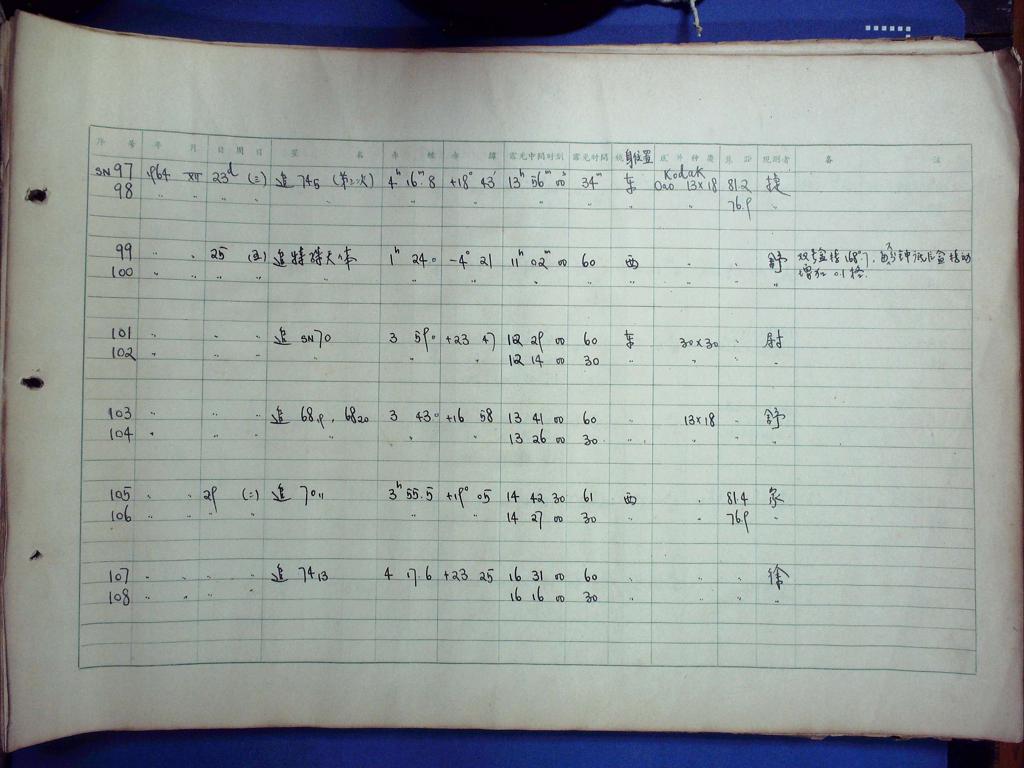 序 号 年 月 日 周 日 星 名 赤 经 赤 纬 露光中间时刻 露光时间 镜身位置 底片种类 焦距 观测者 备 注
SN97 1964 XII 23d (三) 追 745 (第二次) 4h 16m.8 +18° 43′ 13h 56m 00s 34m 东 Kodak Oao 13×18 81.2 捷
98 〃 〃 〃 〃 〃 〃 〃 〃 〃 76.9 〃
99 〃 〃 25 (五) 追特殊天体 1h 24.0 -4° 21 11h 02m 00 60 西 〃 〃 舒
100 〃 〃 〃 〃 〃 〃 〃 〃 〃 〃 增加 0.1
101 〃 〃 〃 〃 追 SN70 3 59.0 +23 47 12 29 00 60 东 30×30 〃 尉
102 〃 〃 〃 12 14 00 30 〃 〃 〃
103 〃 〃 〃 追 689, 6820 3 43.0 +16 58 13 41 00 60 〃 13×18 〃 舒
104 〃 〃 〃 〃 〃 13 26 00 30 〃 〃 〃 〃
105 〃 〃 29 (二) 追 7011 3h 55.5 +19° 05 14 42 30 61 西 〃 81.4 家
106 〃 〃 〃 〃 〃 14 27 00 30 〃 〃 76.9 〃
107 〃 〃 〃 追 7413 4 17.6 +23 25 16 31 00 60 〃 〃 〃 徐
108 〃 〃 〃 16 16 00 30 〃 〃 〃